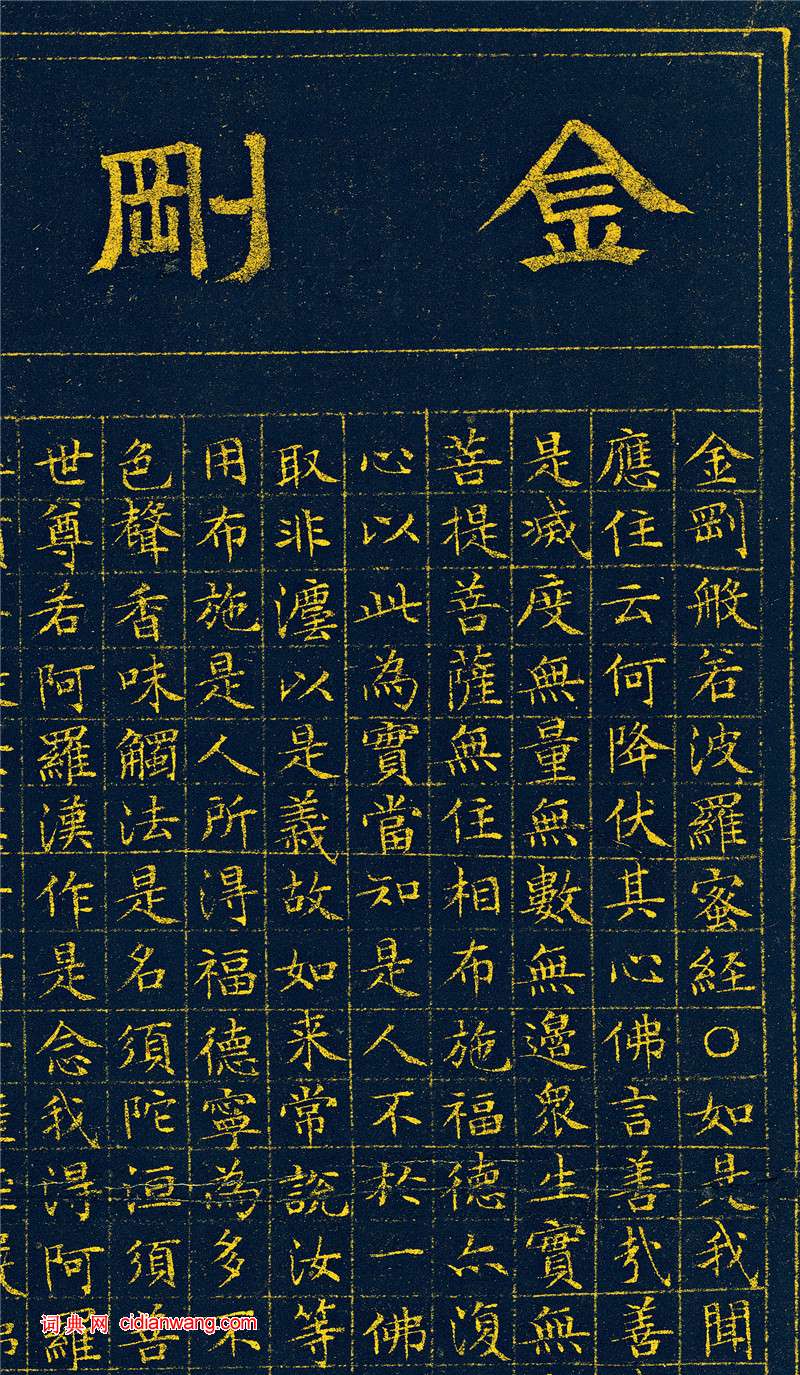 金剛
金剛般若波羅蜜経○如是我聞
應住云何降伏其心佛言善哉善
是滅度無量無數無邊衆生實無
菩提菩薩無住相布施福德亦復
心以此為實當知是人不於一佛
取非灋以是義故如来常說汝等
用布施是人所得福德寧為多不
色聲香味觸法是名須陀洹須菩
世尊若阿羅漢作是念我得阿羅
词典网 cidianwang.com